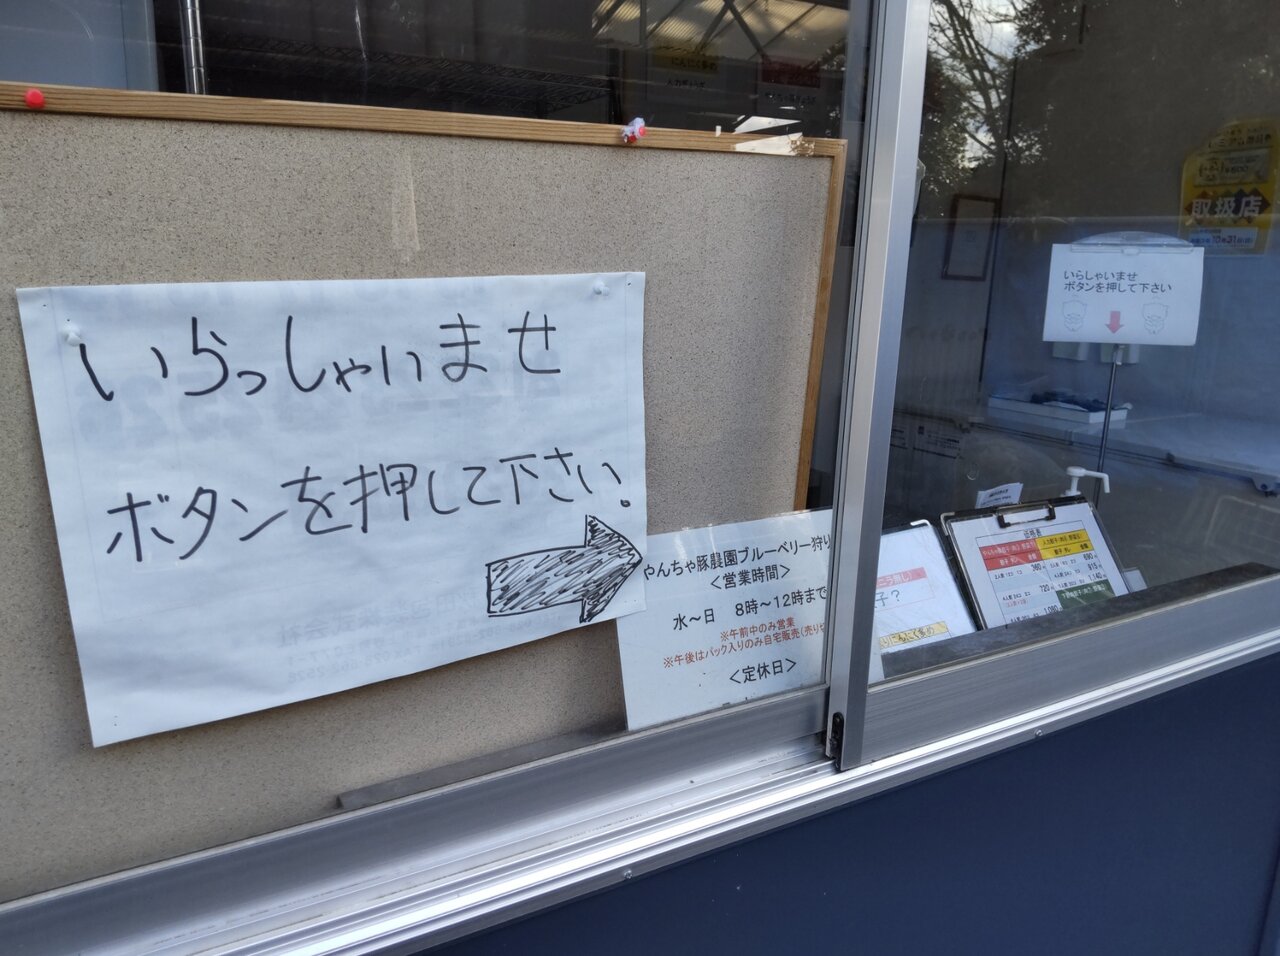 いらっしゃいませ
ボタンを押して下さい。
やんちゃ豚農園ブルーベリー狩り
＜営業時間＞
水～日　8時～12時まで
※午前中のみ営業
※午後はパック入りのみ自宅販売（売り
＜定休日＞
いらしゃいませ
ボタンを押して下さい
取扱店
10月31日
にんにく多め
価格表
360
720
1,080
690
915
1,140